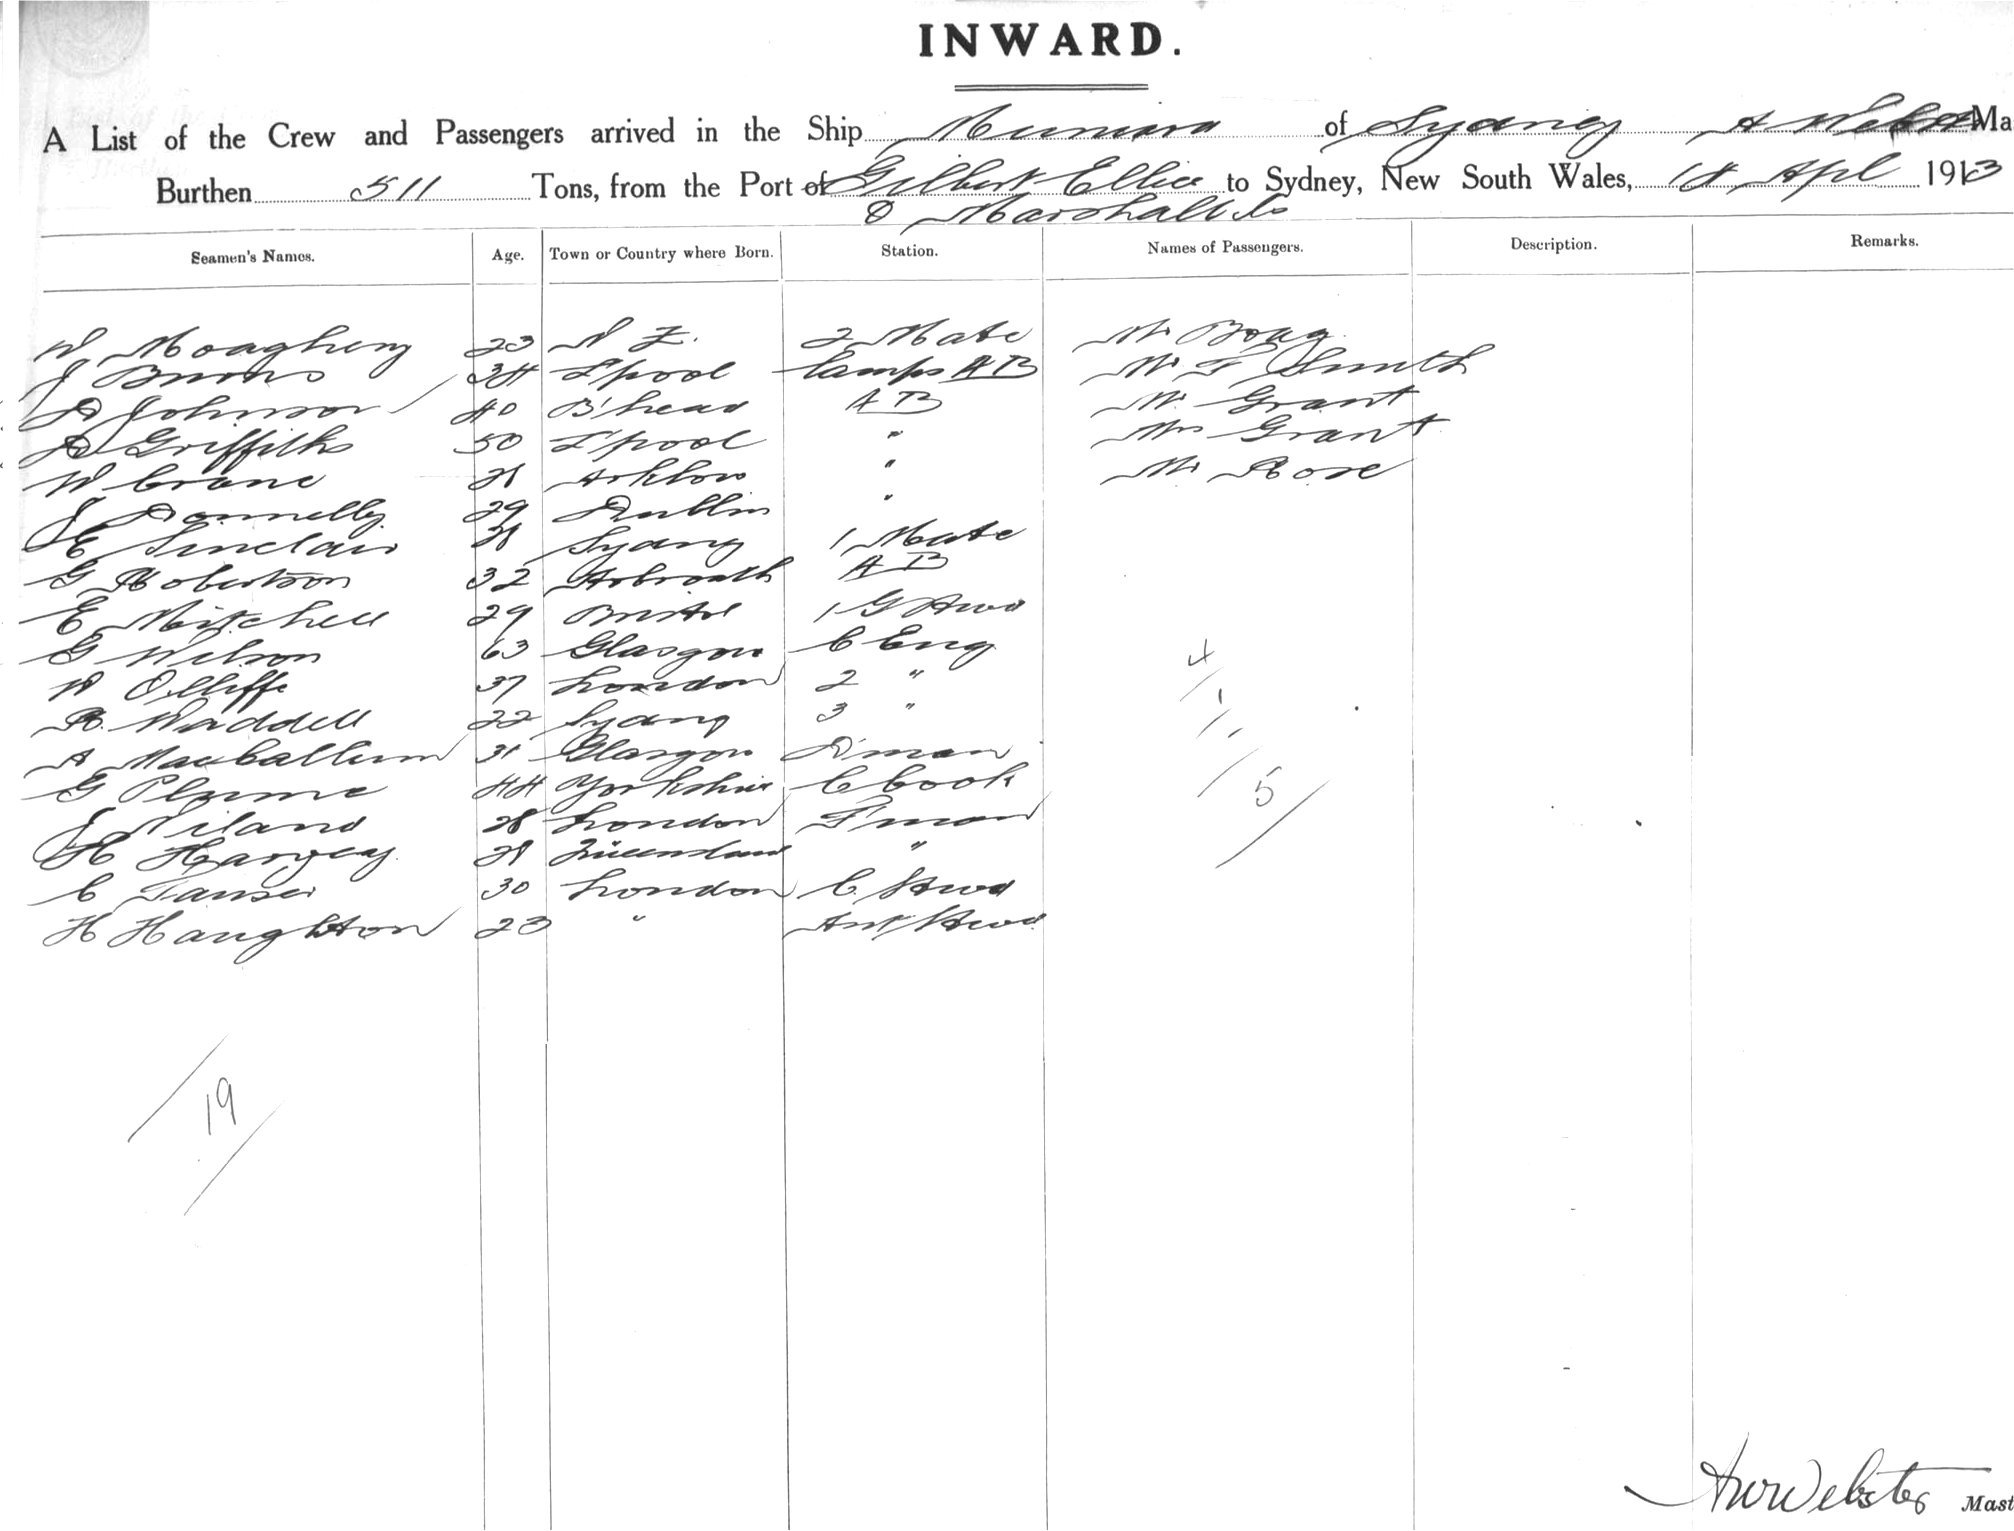 INWARD.
A List of the Crew and Passengers arrived in the Ship Muniara of Sydney A Webster Ma
Burthen 511 Tons, from the Port of Gilbert Ellice to Sydney, New South Wales, Apl 1913
& Marshall Is
Seamen's Names. Age. Town or Country where Born. Station. Names of Passengers. Description. Remarks.
W Moaghery 23 N Z. 2 Mate Mr
J Burns 34 L'pool Lamps AB Mr F Smith
D Johnson 40 B'head AB Mr Grant
D Griffiths 50 L'pool " Mrs Grant
W Crane Arklow " Mr Rose
J Donnelly 29 Dublin "
E Sinclair Sydney 1 Mate
G Robertson 32 Arbroath AB
E Mitchell 29 Bristol
G Wilson 63 Glasgow C Eng
W Olliffe 37 London 2 "
R. Waddell 22 Sydney 3 "
A MacCallum 31 Glasgow D'man
G Plume 44 Yorkshire C Cook
J Niland 28 London F'man
H Harvey Queensland "
C 30 London C. Stwd
H Haughton 23 " Asst Stwd
4
1
5
19
AW Webster Mast